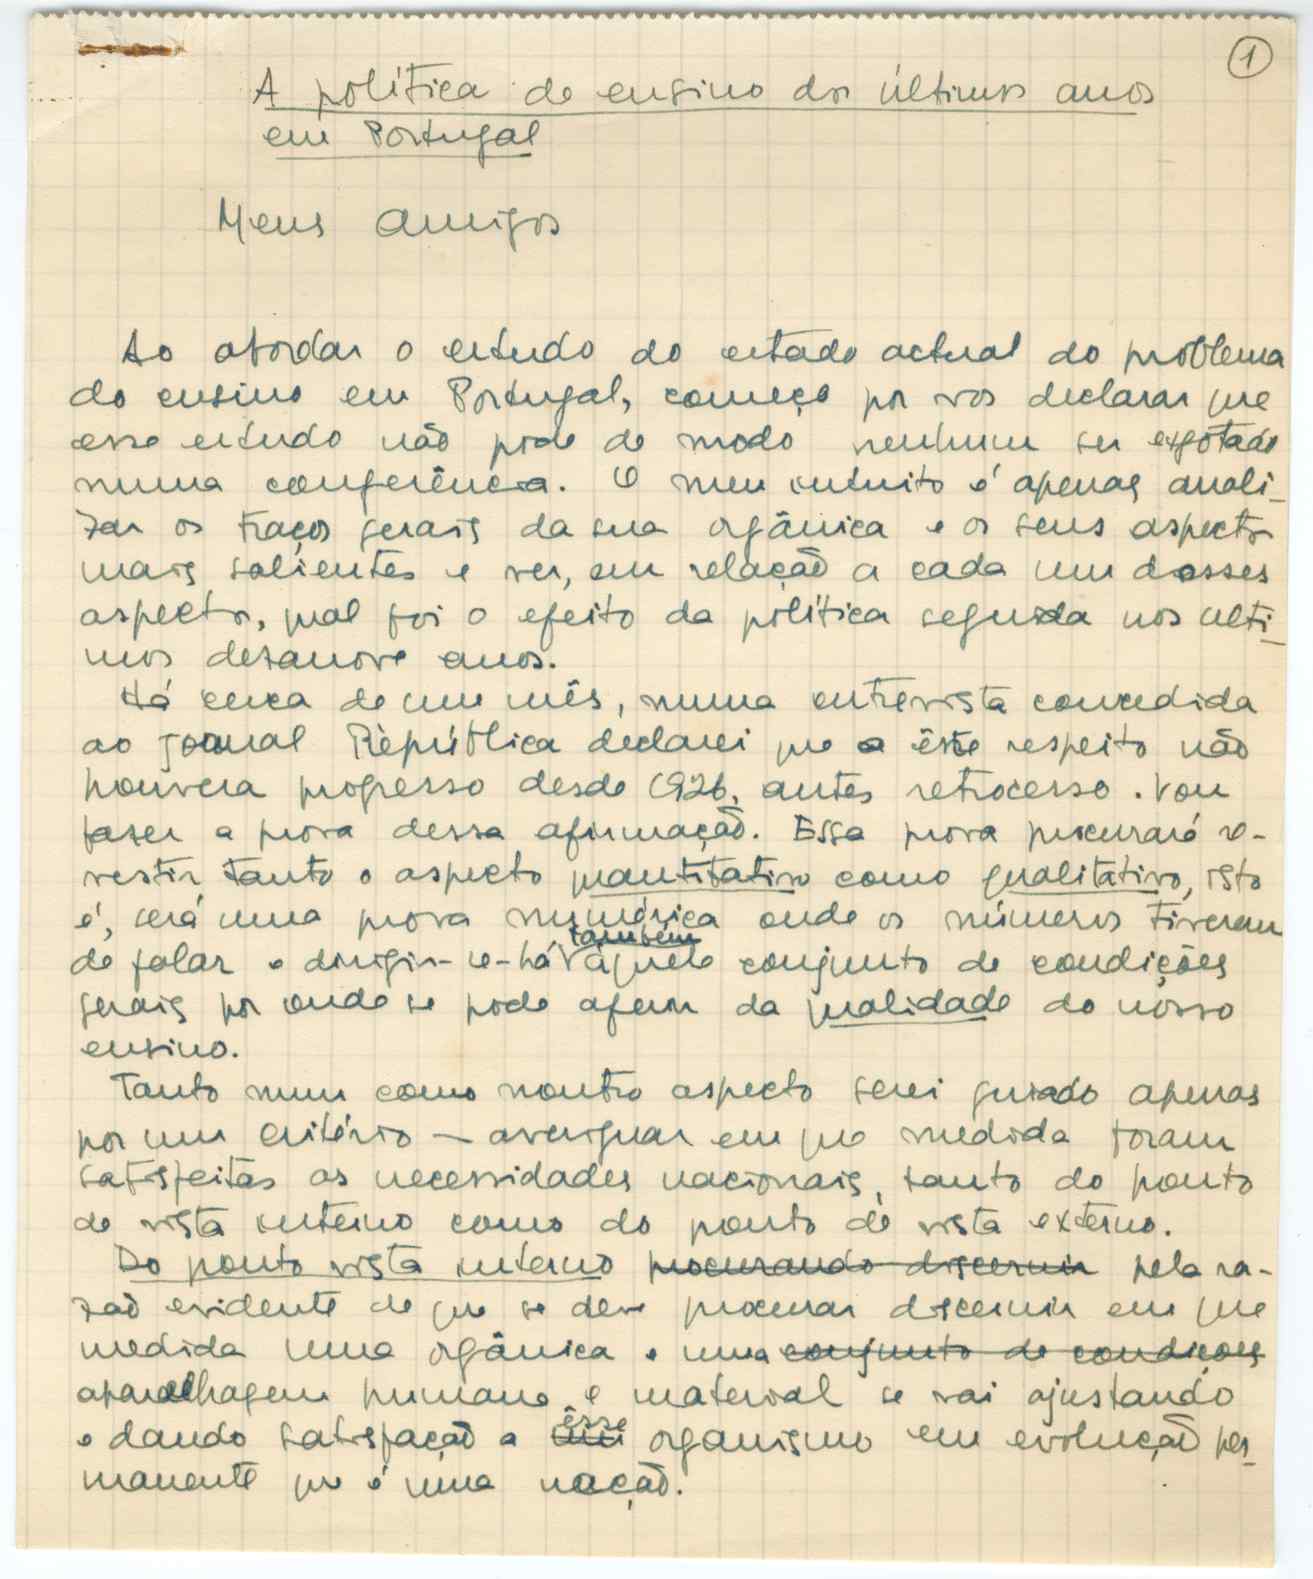 1
A política de ensino dos últimos anos
em Portugal
Meus amigos
Ao abordar o estudo do estado actual do problema
do ensino em Portugal, começo por vos declarar que
esse estudo não pode de modo nenhum ser esgotado
numa conferência. O meu intuito é apenas anali-
zar os traços gerais da sua orgânica e os seus aspectos
mais salientes e ver, em relação a cada um desses
aspectos, qual foi o efeito da política seguida nos últi-
mos dezanove anos.
Há cerca de um mês, numa entrevista concedida
ao jornal República declarei que a êste respeito não
houvera progresso desde 1926, antes retrocesso. Vou
fazer a prova dessa afirmação. Essa prova procurará re-
vestir tanto o aspecto quantitativo como qualitativo, isto
é, será uma prova numérica onde os números tiverem
também
de falar e dirigir-se-há àquele conjunto de condições
gerais por onde se pode aferir da qualidade do nosso
ensino.
Tanto num como noutro aspecto serei guiado apenas
por um critério — averiguar em que medida foram
satisfeitas as necessidades nacionais, tanto do ponto
de vista interno como do ponto de vista externo.
Do ponto vista interno procurando discernir pela ra-
zão evidente de que se deve procurar discernir em que
medida uma orgânica e uma conjunto de condições
aparelhagem humana e material se vai ajustando
êsse
e dando satisfação a um organismo em evolução per-
manente que é uma nação.